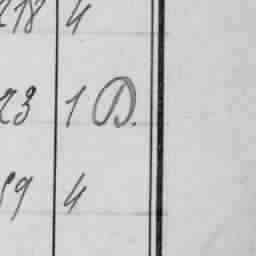 218 4
23 1 D.
59 4